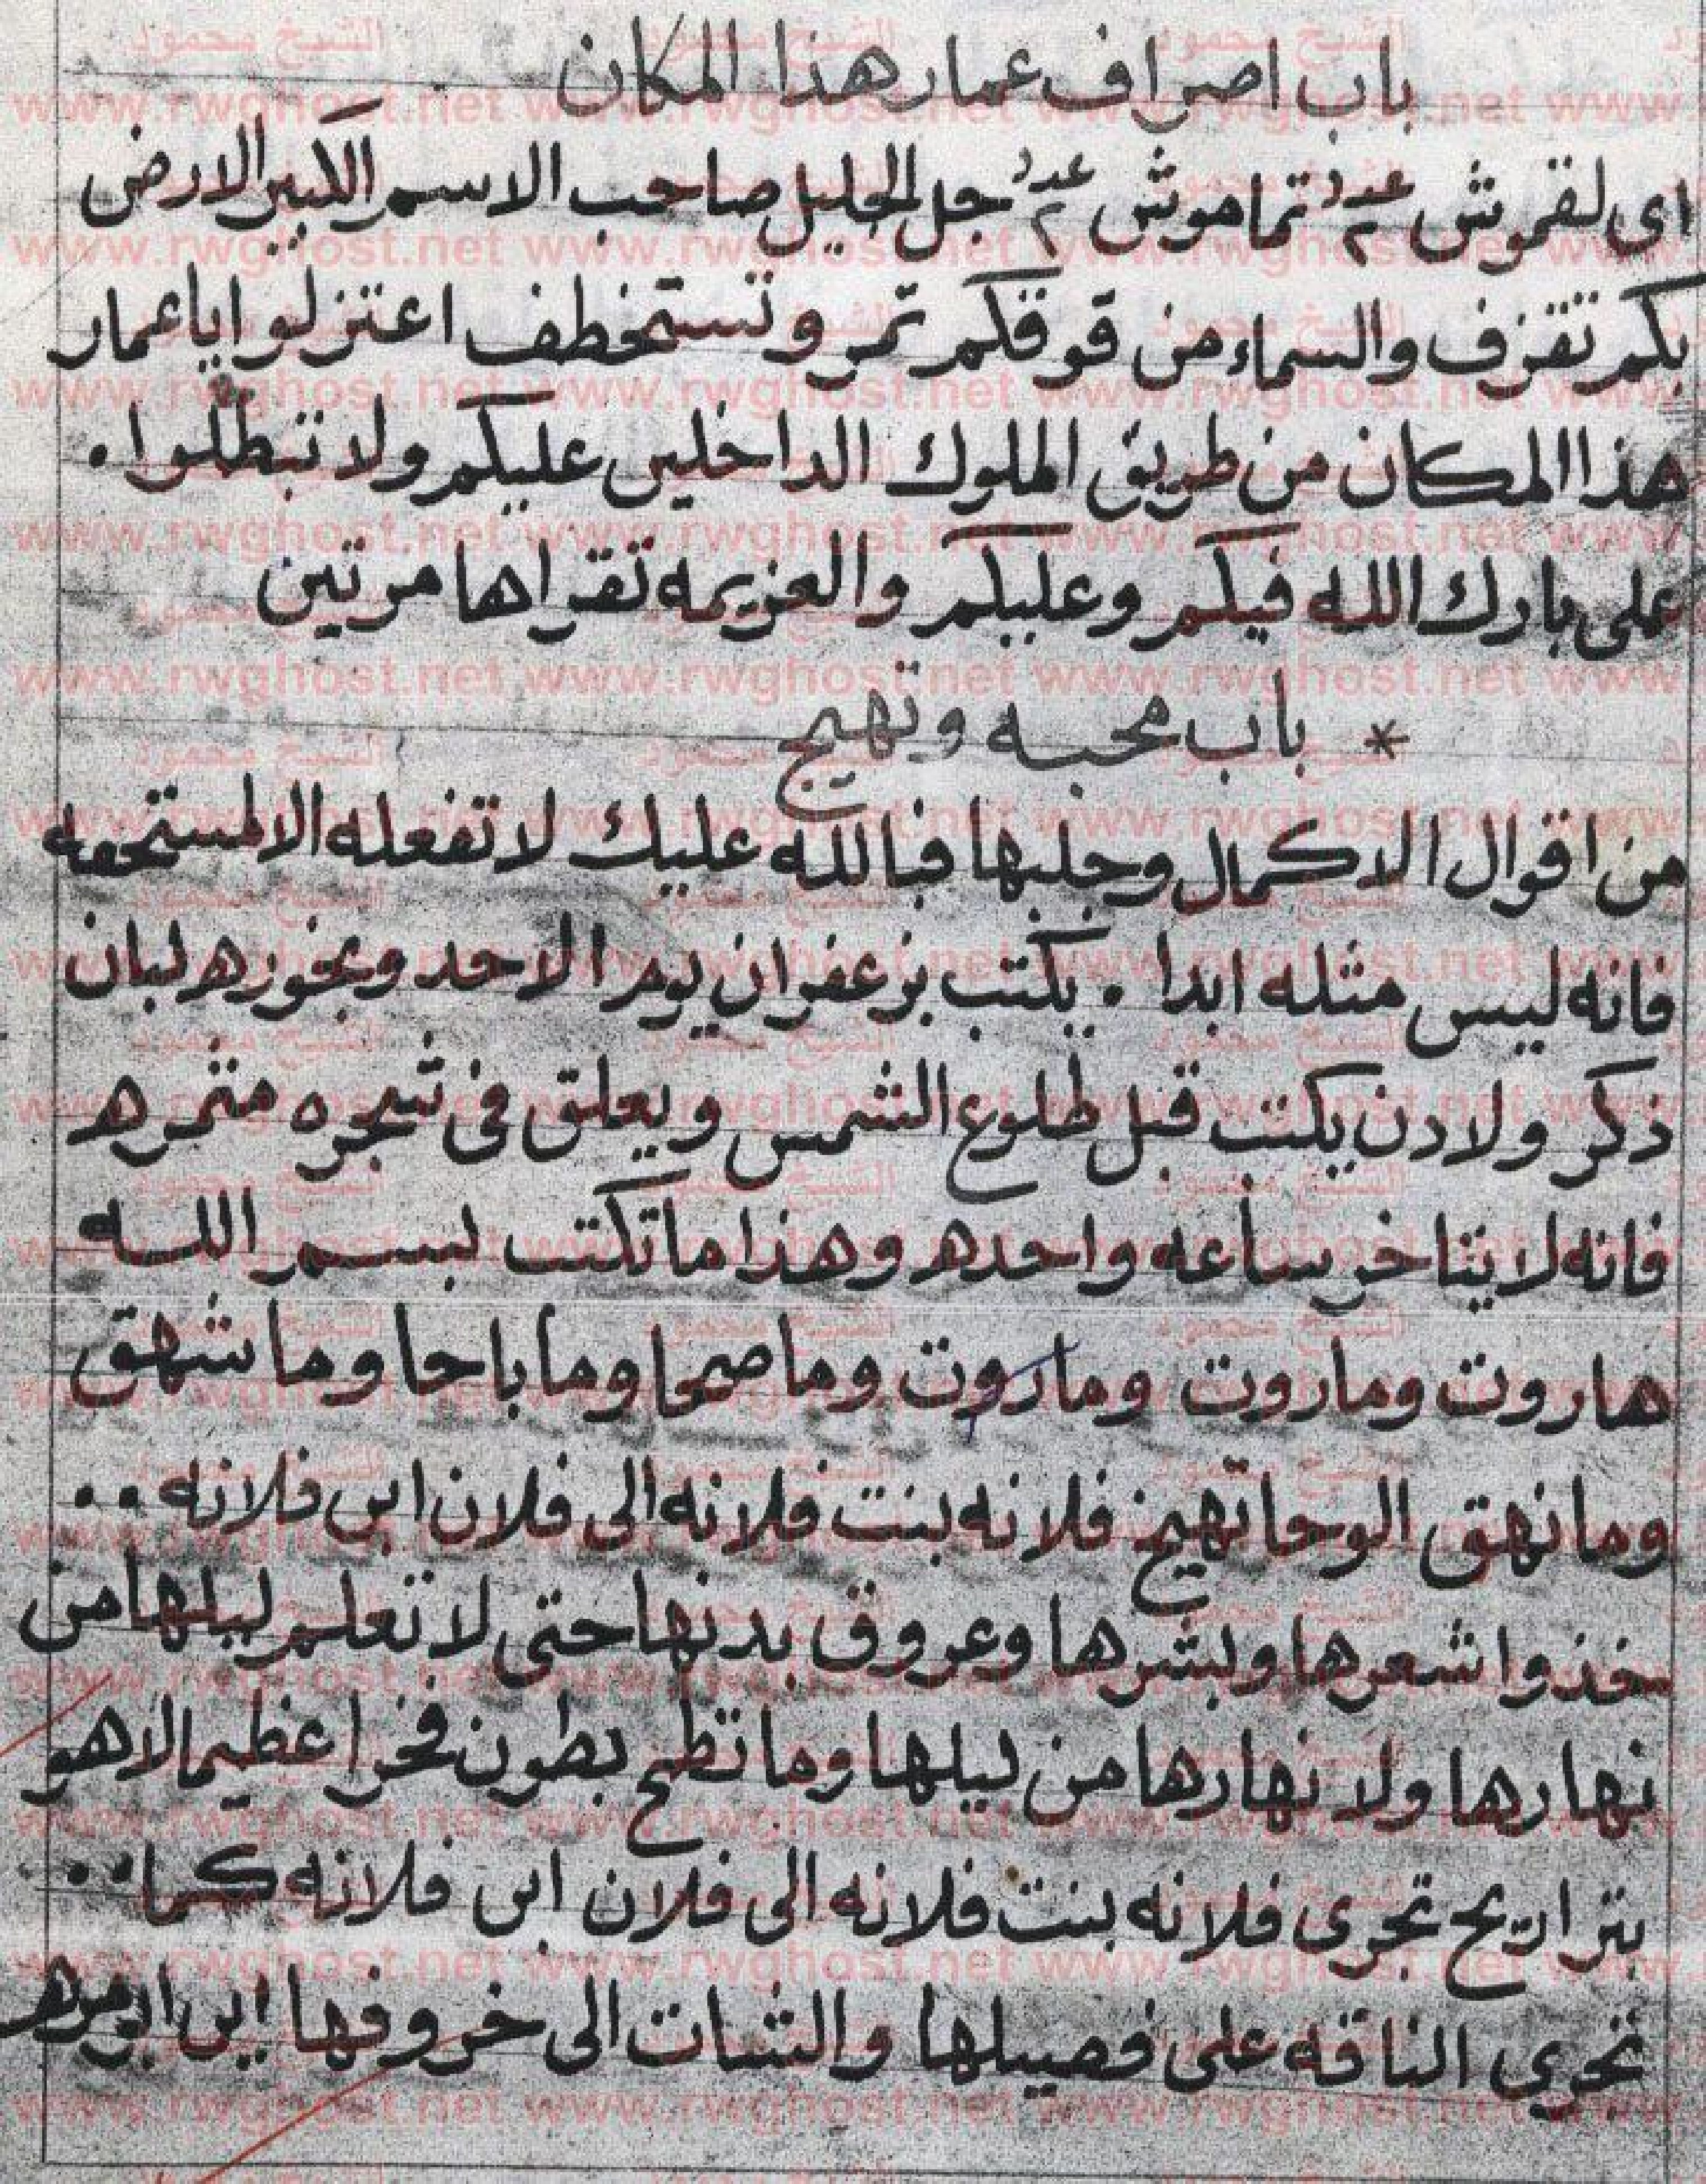 باب اصراف عمار هذا المكان
اى لقموش عدد ٢ تماموش عدد ٢ جل الجليل صاحب الاسم الكبير الارض
بكم تقزف والسماء من قوقكم تمر وتستخطف اعتزلوا ياعمار
هذا المكان من طريق الملوك الداخلين عليكم ولا تبطلوا .
عملى بارك الله فيكم وعليكم والعزيمه تقراها مرتين
* باب محبه وتهيج
من اقوال الاكمال وجلبها فبالله عليك لا تفعله الا لمستحقه
فانه ليس مثله ابدا . يكتب بزعفران يوم الاحد وبخوره لبان
ذكر ولادن يكتب قبل طلوع الشمس ويعلق فى شجره مثمره
فانه لا يتاخر ساعه واحده وهذا ما تكتب بسم الله
هاروت وماروت وماروت وماصحا وما باحا وما شهق
وما نهق الوحا تهيج فلانه بنت فلانه الى فلان ابن فلانه ..
خذوا شعرها وبشرها وعروق بدنها حتى لا تعلم ليلها من
نهارها ولا نهارها من ليلها وما تطح بطون فخرا عظيما الاهو
بتراريح تجرى فلانه بنت فلانه الى فلان ابن فلانه كما ..
تجري الناقه على فصيلها والشات الى خروفها اين
www.rwghost.net
الشيخ محمود